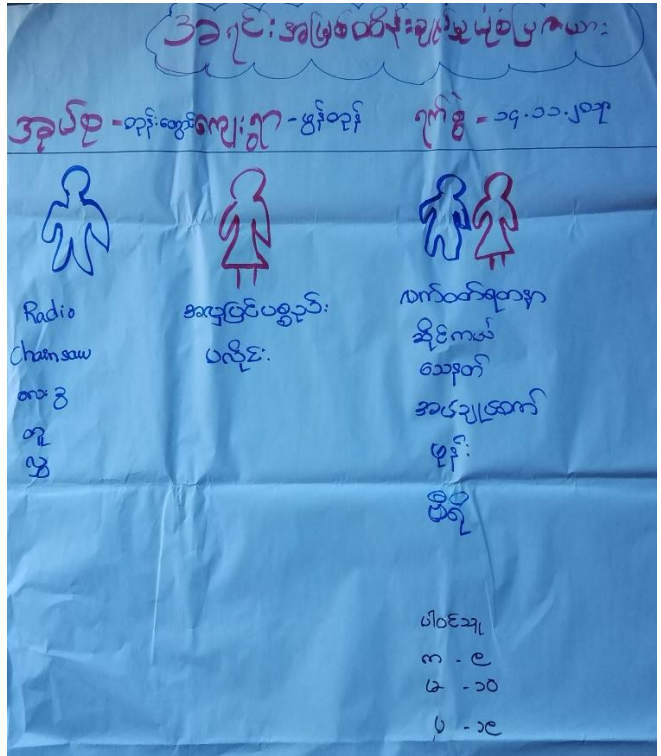 အရင်းအမြစ်ထိန်းချုပ်မှုပုံစံပြဇယား
အုပ်စု - တွန်းတွောင်ကျေးရွာ - မွန်တုန် ရက်စွဲ - ၁၄.၁၁.၂၀၁၃
Radio
Chainsaw
လေးခွ
တူ
လွှ
အလှပြင်ပစ္စည်း
ပလိုင်း
လက်ဝတ်ရတနာ
ဆိုင်ကယ်
သေနတ်
အဝင်ချုပ်စက်
ဖုန်း
ဗီရို
ပါဝင်သူ
က - ၉
မ - ၁၀
ပ - ၁၉